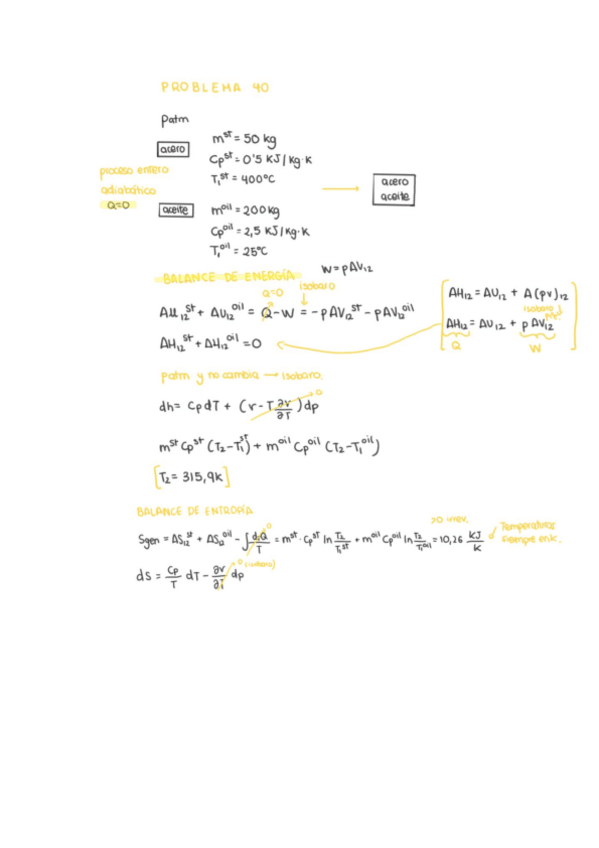 PROBLEMA 40
Patm
acero
m^st = 50 kg
Cp^st = 0'5 KJ/kg·K
T₁^st = 400°C
proceso entero
adiabático
Q=0
acero
aceite
aceite
m^oil = 200kg
Cp^oil = 2,5 KJ/kg·K
T₁^oil = 25°C
BALANCE DE ENERGÍA
W = pΔV₁₂
Q=0
isobaro
ΔU₁₂^st + ΔU₁₂^oil = Q - W = -pΔV₁₂^st - pΔV₁₂^oil
ΔH₁₂^st + ΔH₁₂^oil = 0
ΔH₁₂ = ΔU₁₂ + Δ(pv)₁₂
isobaro
ΔH₁₂ = ΔU₁₂ + pΔV₁₂
Q
W
patm y no cambia → isobaro.
dh = Cp dT + (v - T ∂v/∂T) dp
0
m^st Cp^st (T₂ - T₁^st) + m^oil Cp^oil (T₂ - T₁^oil)
[T₂ = 315,9K]
BALANCE DE ENTROPÍA
>0 irrev.
Sgen = ΔS₁₂^st + ΔS₁₂^oil - ∫dQ/T = m^st · Cp^st ln T₂/T₁^st + m^oil Cp^oil ln T₂/T₁^oil = 10,26 KJ/K
0
Temperaturas
siempre en k.
dS = Cp/T dT - ∂v/∂T dp
0 (isobaro)